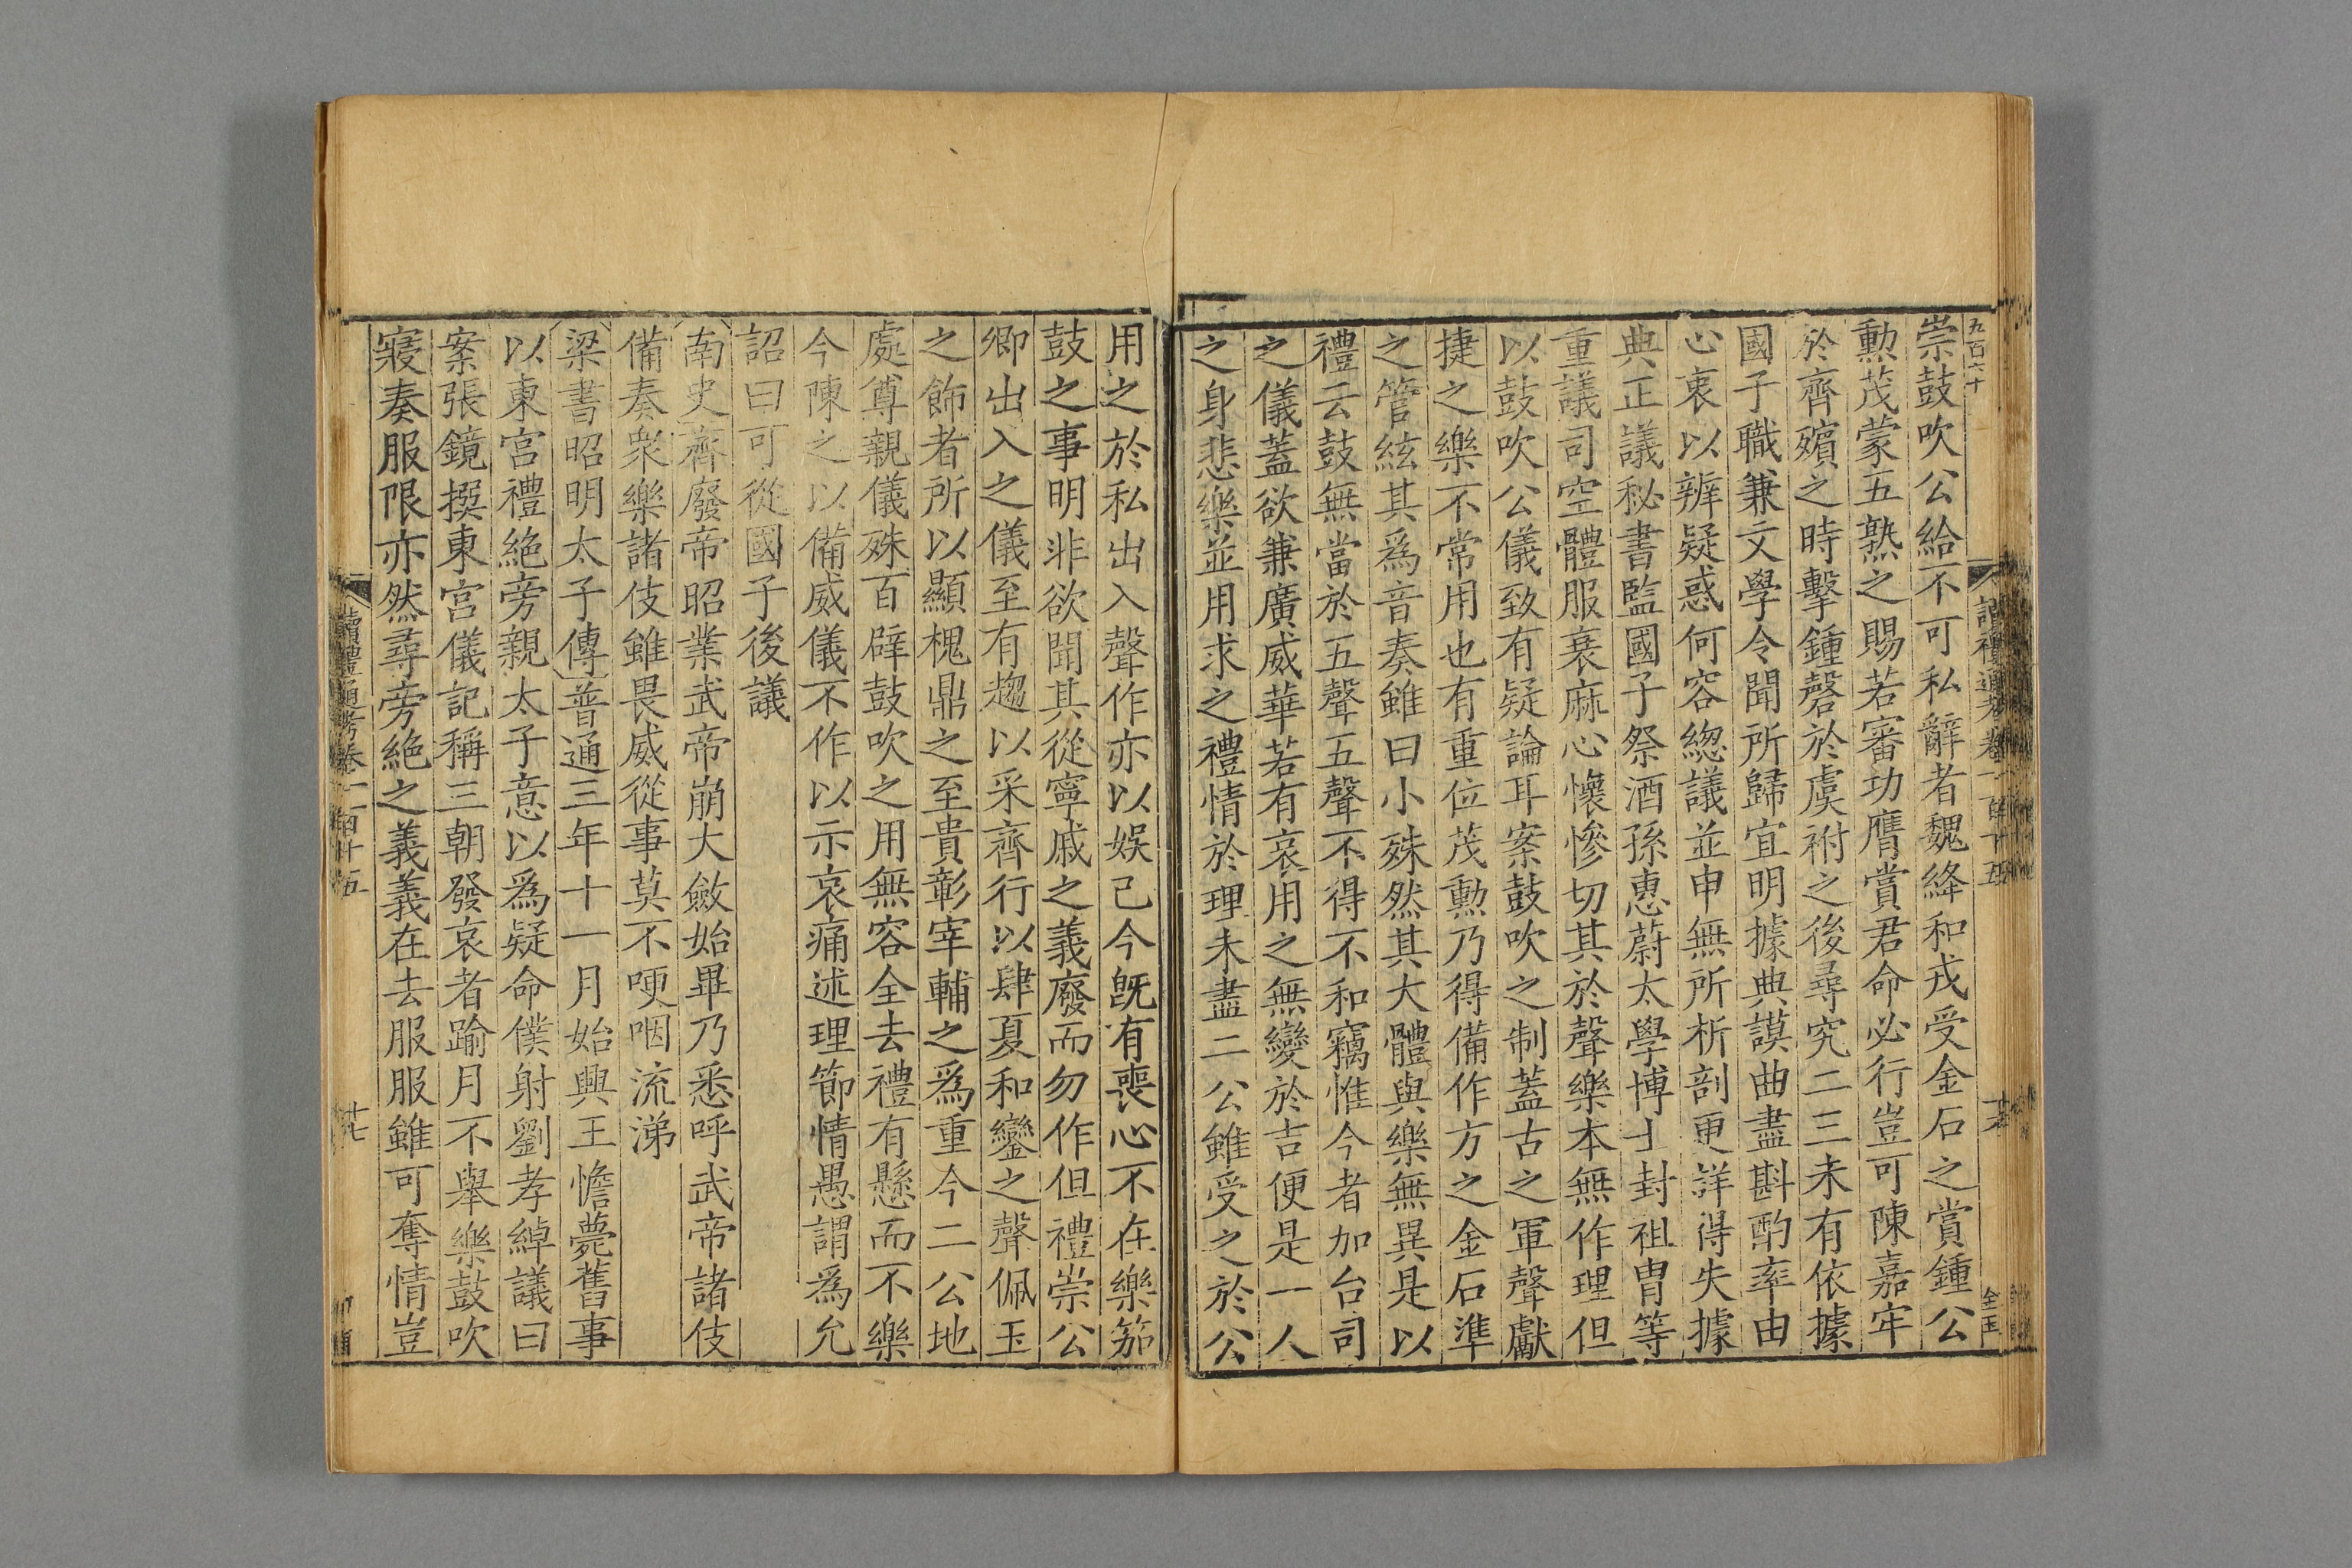 九百六十
讀禮通考卷一百十五
崇鼓吹公給不可私辭者魏絳和戎受金石之賞鍾公
勳茂蒙五熟之賜若審功膺賞君命必行豈可陳嘉牢
於齊殯之時擊鍾磬於虞祔之後尋究二三未有依據
國子職兼文學令聞所歸宜明據典謨曲盡斟酌率由
心衷以辨疑惑何容緫議並申無所析剖更詳得失據
典正議秘書監國子祭酒孫惠蔚太學博士封祖胄等
重議司空體服衰麻心懷慘切其於聲樂本無作理但
以鼓吹公儀致有疑論耳案鼓吹之制蓋古之軍聲獻
捷之樂不常用也有重位茂勳乃得備作方之金石準
之管絃其為音奏雖曰小殊然其大體與樂無異是以
禮云鼓無當於五聲五聲不得不和竊惟今者加台司
之儀蓋欲兼廣威華若有哀用之無變於吉便是一人
之身悲樂並用求之禮情於理未盡二公雖受之於公
用之於私出入聲作亦以娛己今旣有喪心不在樂笳
鼓之事明非欲聞其從寧戚之義廢而勿作但禮崇公
卿出入之儀至有趨以采齊行以肆夏和鑾之聲佩玉
之飾者所以顯槐鼎之至貴彰宰輔之為重今二公地
處尊親儀殊百辟鼓吹之用無容全去禮有懸而不樂
今陳之以備威儀不作以示哀痛述理節情愚謂為允
詔曰可從國子後議
南史齊廢帝昭業武帝崩大斂始畢乃悉呼武帝諸伎
備奏衆樂諸伎雖畏威從事莫不哽咽流涕
梁書昭明太子傳普通三年十一月始興王憺薨舊事
以東宮禮絶旁親太子意以爲疑命僕射劉孝綽議曰
案張鏡撰東宮儀記稱三朝發哀者踰月不舉樂鼓吹
寢奏服限亦然尋旁絶之義義在去服服雖可奪情豈
讀禮通考卷一百十五
十七